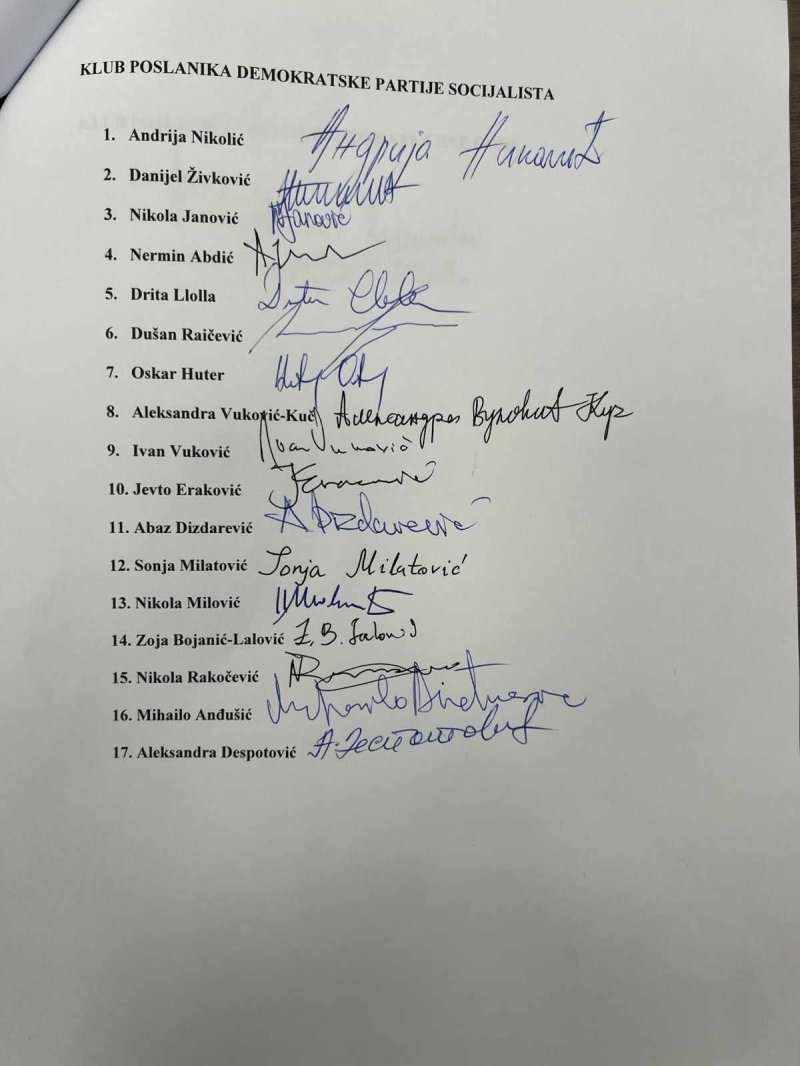 KLUB POSLANIKA DEMOKRATSKE PARTIJE SOCIJALISTA
1. Andrija Nikolić Андрија Николић
2. Danijel Živković
3. Nikola Janović Njanović
4. Nermin Abdić
5. Drita Llolla Drita Llolla
6. Dušan Raičević
7. Oskar Huter
8. Aleksandra Vuković-Kuč Александра Вуковић Куч
9. Ivan Vuković Ivan Vuković
10. Jevto Eraković
11. Abaz Dizdarević A Dizdarević
12. Sonja Milatović Sonja Milatović
13. Nikola Milović
14. Zoja Bojanić-Lalović Z. B. Lalović
15. Nikola Rakočević
16. Mihailo Anđušić
17. Aleksandra Despotović А. Деспотовић